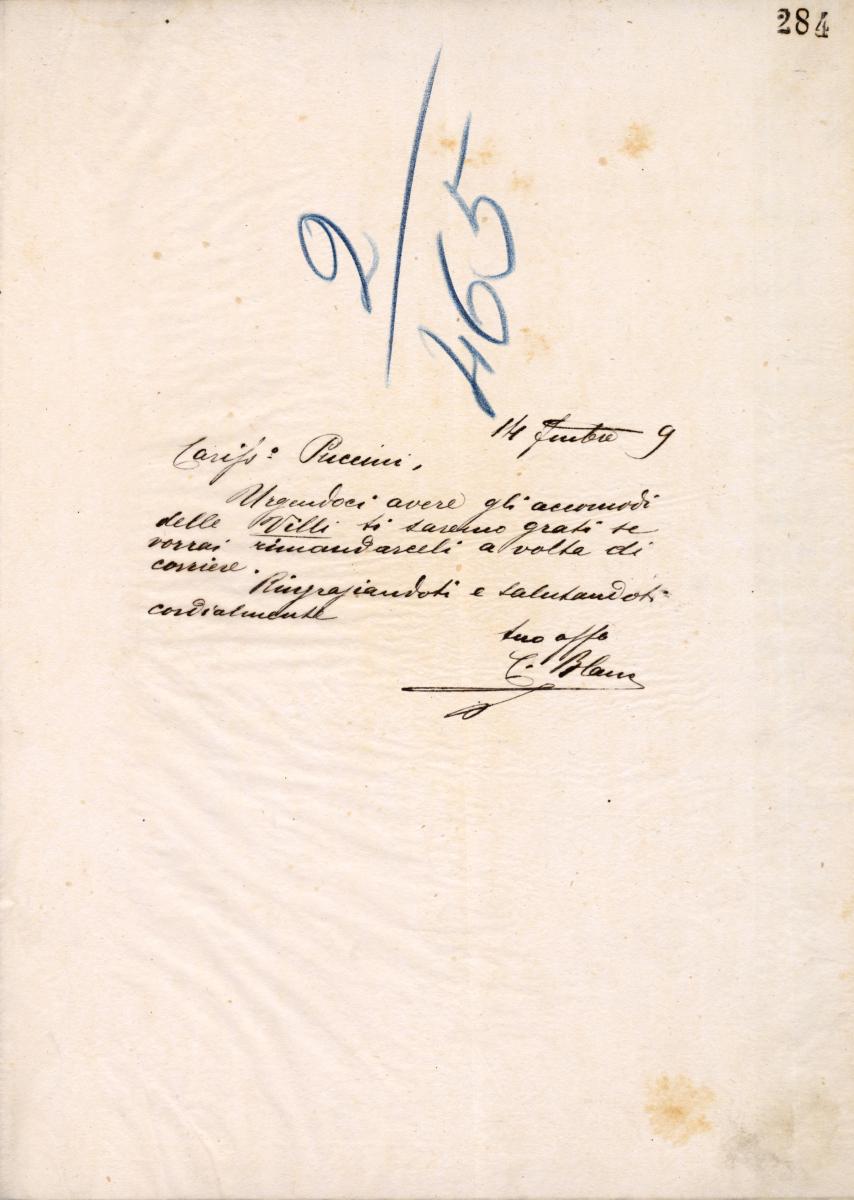 284
2/465
14 7mbre 9
Cariss.º Puccini,
Urgendoci avere gli accomodi
delle Villi ti saremo grati se
vorrai rimandarceli a volta di
corriere.
Ringraziandoti e salutandoti
cordialmente
tuo affo
C. Blanc